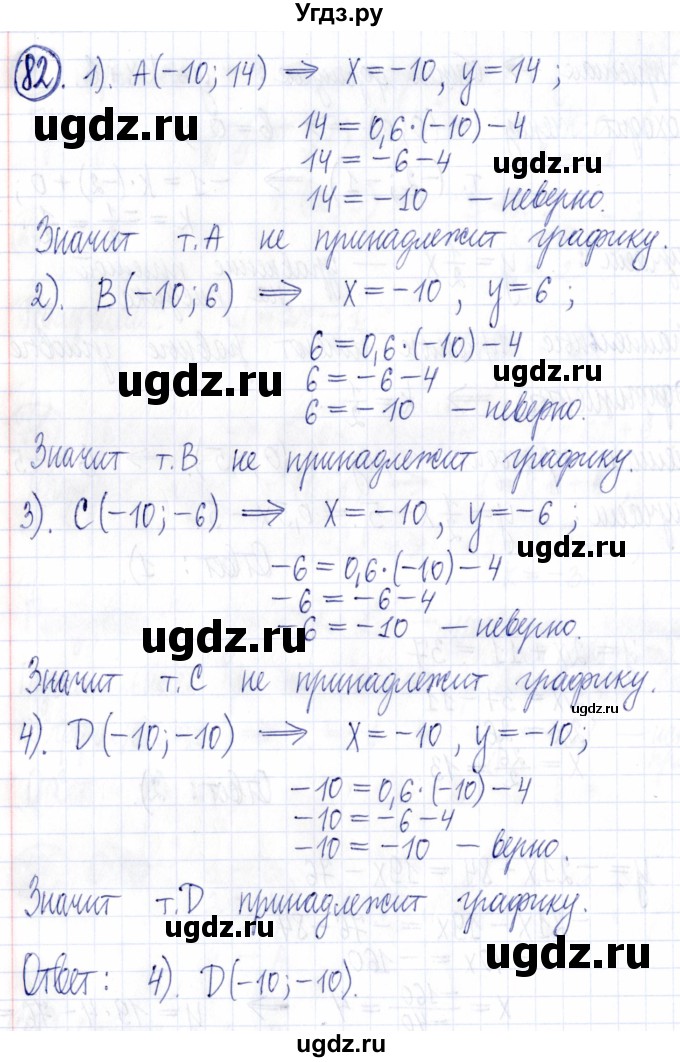 Угдз.ру
82. 1). A(-10; 14) ⟹ x = -10, y = 14 ;
ugdz.ru
14 = 0,6·(-10) - 4
14 = -6 - 4
ugdz.ru
14 = -10 - неверно.
Значит т.А не принадлежит графику.
2). B(-10; 6) ⟹ x = -10 , y = 6 ;
6 = 0,6·(-10) - 4
ugdz.ru
6 = -6 - 4
ugdz.ru
6 = -10 - неверно.
Значит т.В не принадлежит графику.
3). C(-10; -6) ⟹ x = -10, y = -6 ;
ugdz.ru
-6 = 0,6·(-10) - 4
-6 = -6 - 4
ugdz.ru
-6 = -10 - неверно.
Значит т.С не принадлежит графику.
ugdz.ru
4). D(-10; -10) ⟹ x = -10 , y = -10;
-10 = 0,6·(-10) - 4
ugdz.ru
-10 = -6 - 4
-10 = -10 - верно.
Значит т.D принадлежит графику.
ugdz.ru
ugdz.ru
Ответ: 4). D(-10; -10).